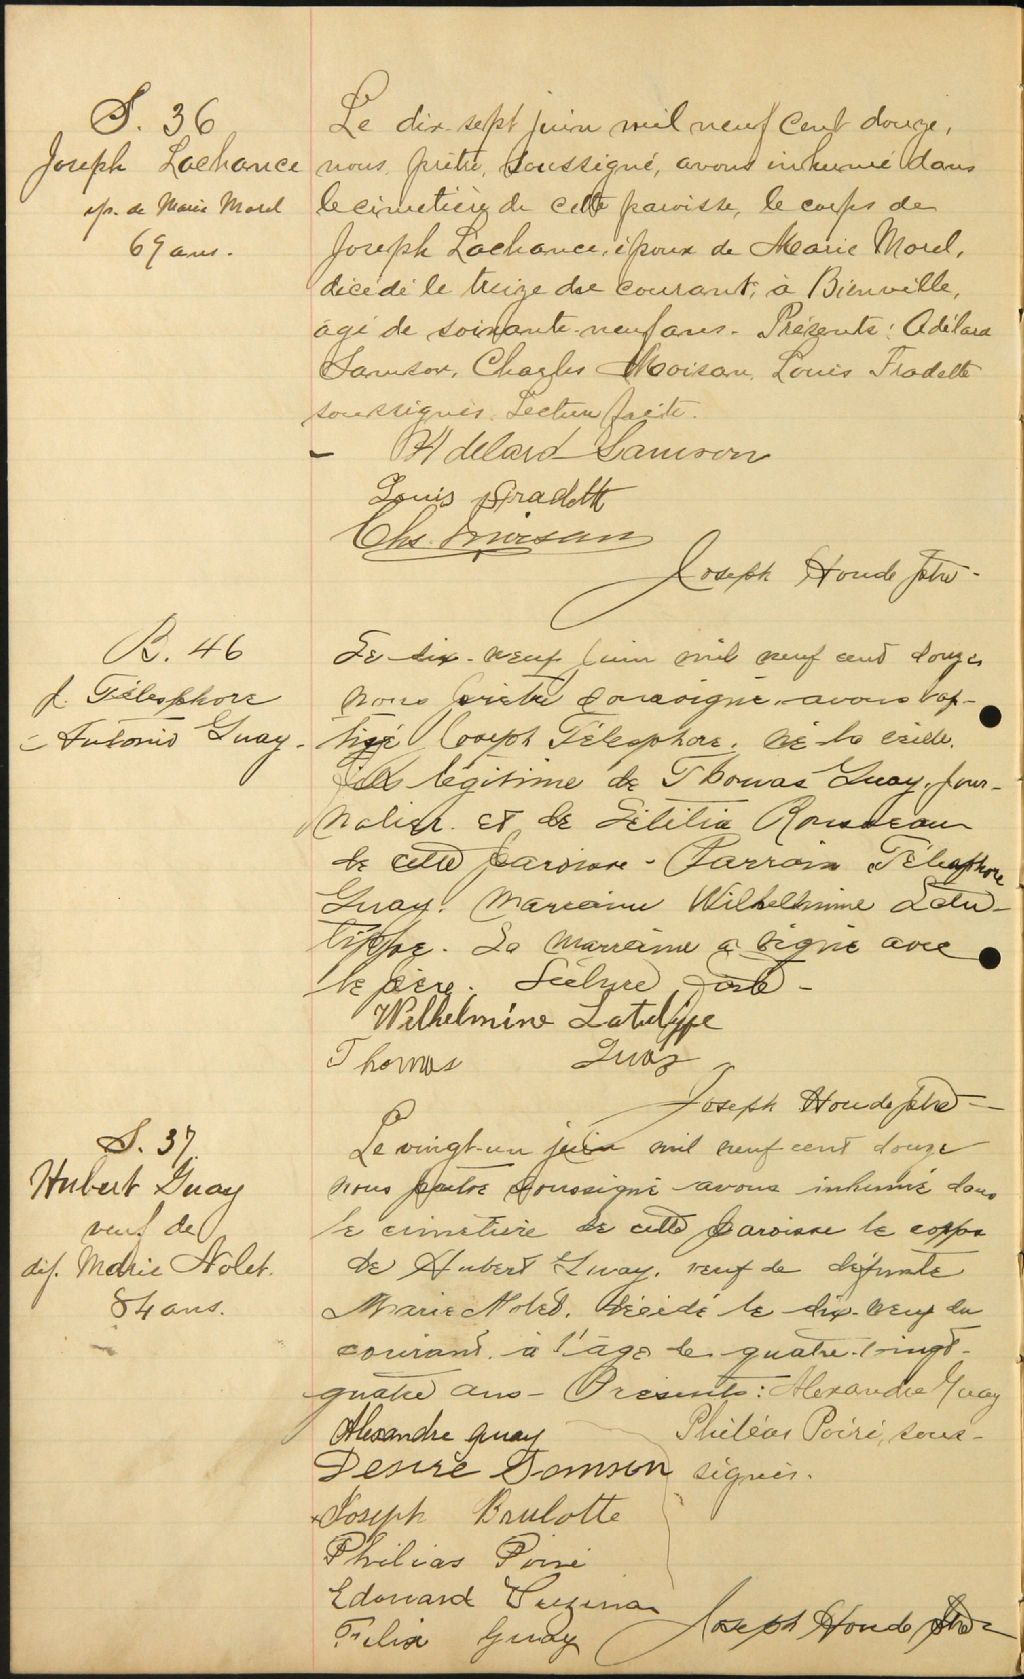 S. 36
Joseph Lachance
ép. de Marie Morel
69 ans.
Le dix-sept juin mil neuf cent douze,
nous, prêtre, soussigné, avons inhumé dans
le cimetière de cette paroisse, le corps de
Joseph Lachance, époux de Marie Morel,
décédé le treize du courant, à Bienville,
âgé de soixante-neuf ans. Présents: Adélard
Samson, Charles Moisan, Louis Fradette
soussignés. Lecture faite.
Adelard Samson
Louis Fradette
Chs. Moisan
Joseph Houde ptre
B. 46
J. Télesphore
Antonio Guay.
Le dix-neuf juin mil neuf cent douze
nous prêtre soussigné avons bap-
tisé Joseph Télesphore, né la veille,
fils légitime de Thomas Guay, jour-
nalier et de Letitia Rousseau
de cette paroisse - Parrain Télesphore
Guay, marraine Wilhelmine Latu-
lippe. La marraine a signé avec
le père. Lecture faite -
Wilhelmine Latulippe
Thomas Guay
Joseph Houde ptre
S. 37.
Hubert Guay
veuf de
déf. Marie Nolet.
84 ans.
Le vingt-un juin mil neuf cent douze
nous prêtre soussigné avons inhumé dans
le cimetière de cette paroisse le corps
de Hubert Guay, veuf de défunte
Marie Nolet, décédé le dix-neuf du
courant à l'âge de quatre-vingt-
quatre ans - Présents: Alexandre Guay
Philéas Poiré, sous-
signés.
Alexandre Guay
Desire Samson
Joseph Brulotte
Philias Poiré
Edouard
Felix Guay
Joseph Houde ptre